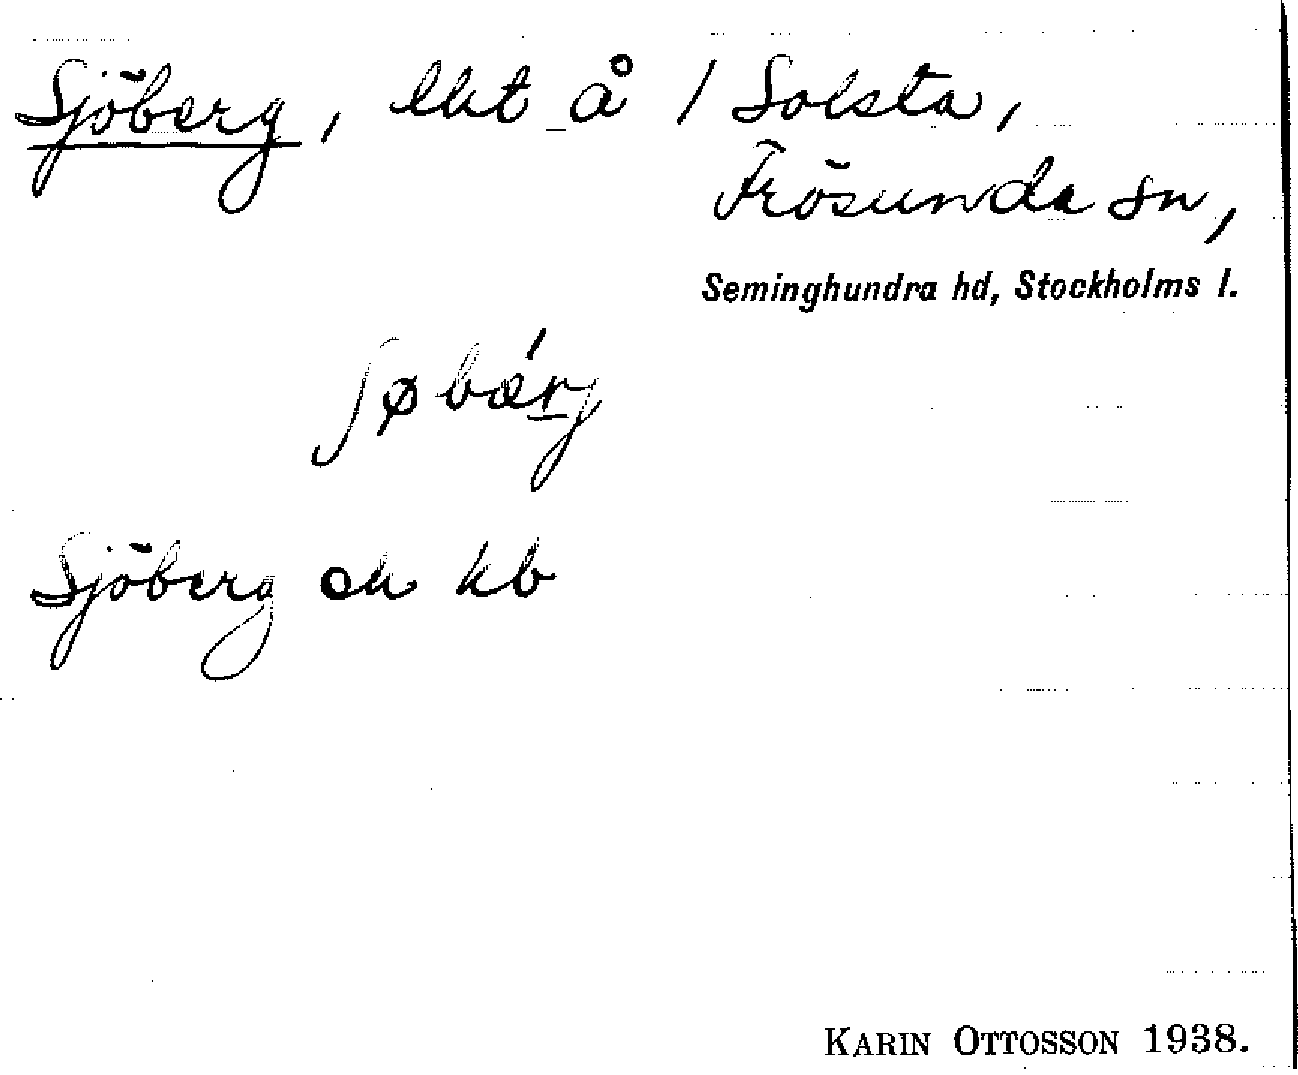 Sjöberg, lht å 1 Solsta,
Frösunda sn,
Seminghundra hd, Stockholms l.
ʃøbǽrj
Sjöberg ek kb
KARIN OTTOSSON 1938.